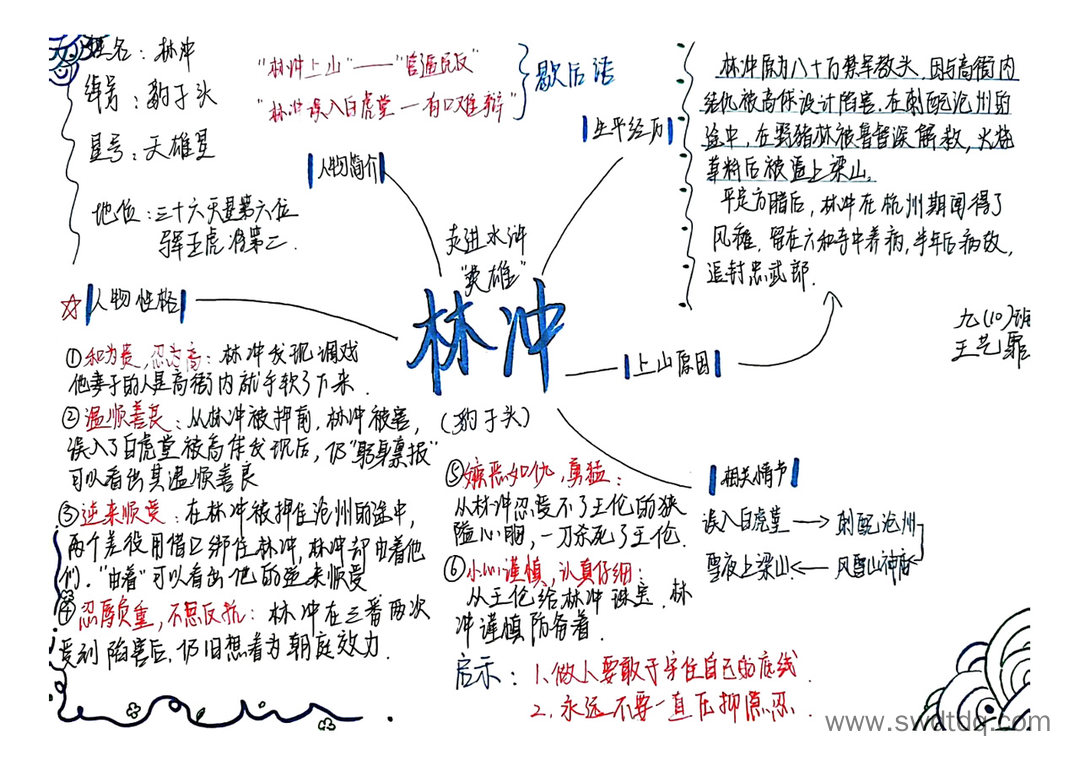 姓名：林冲
绰号：豹子头
星号：天雄星
地位：三十六天星第六位
骅五虎将第二.
"林冲上山"——"官逼民反"
"林冲误入白虎堂—有口难辩"
歇后语
人物简介
生平经历
林冲原为八十万禁军教头，因与高衙内
结仇被高俅设计陷害.在刺配沧州的
途中，在野猪林被鲁智深解救，火烧
草料后被逼上梁山。
平定方腊后，林冲在杭州期间得了
风瘫，留在六和寺中养病，半年后病故，
追封忠武郎.
走进水浒
"英雄"
林冲
(豹子头)
九(10)班
王艺霏
☆人物性格
①和为贵，忍为高：林冲发现调戏
他妻子的人是高衙内就手软了下来.
②温顺善良：从林冲被押前，林冲被害，
误入了白虎堂被高俅发现后，仍"躬身禀报"
可以看出其温顺善良
③逆来顺受：在林冲被押往沧州的途中，
两个差役用借口绑住林冲，林冲却由着他
们."由着"可以看出他的逆来顺受
④忍辱负重，不思反抗：林冲在三番两次
受到陷害后，仍旧想着为朝庭效力.
⑤嫉恶如仇，勇猛：
从林冲忍受不了王伦的狭
隘心胸，一刀杀死了王伦.
⑥小心谨慎，认真仔细：
从王伦给林冲珠宝，林
冲谨慎防备着.
启示：1、做人要敢于守住自己的底线.
2、永远不要一直压抑隐忍.
上山原因
相关情节
误入白虎堂→刺配沧州
雪夜上梁山←风雪山神庙
www.swdtdq.com